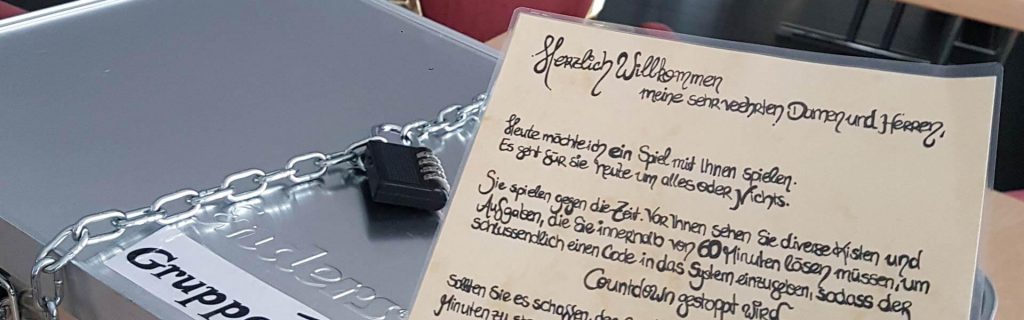 Herzlich Willkommen
meine sehr veehrten Damen und Herren.
Heute möchte ich ein Spiel mit Ihnen spielen.
Es geht für sie heute um alles oder Nichts.
Sie spielen gegen die Zeit. Vor Ihnen sehen Sie diverse Kisten und
Aufgaben, die Sie innerhalb von 60 Minuten lösen müssen, um
schlussendlich einen Code in das System einzugeben, sodass der
Countdown gestoppt wird
Sollten Sie es schaffen, den
Minuten zu
Gruppe